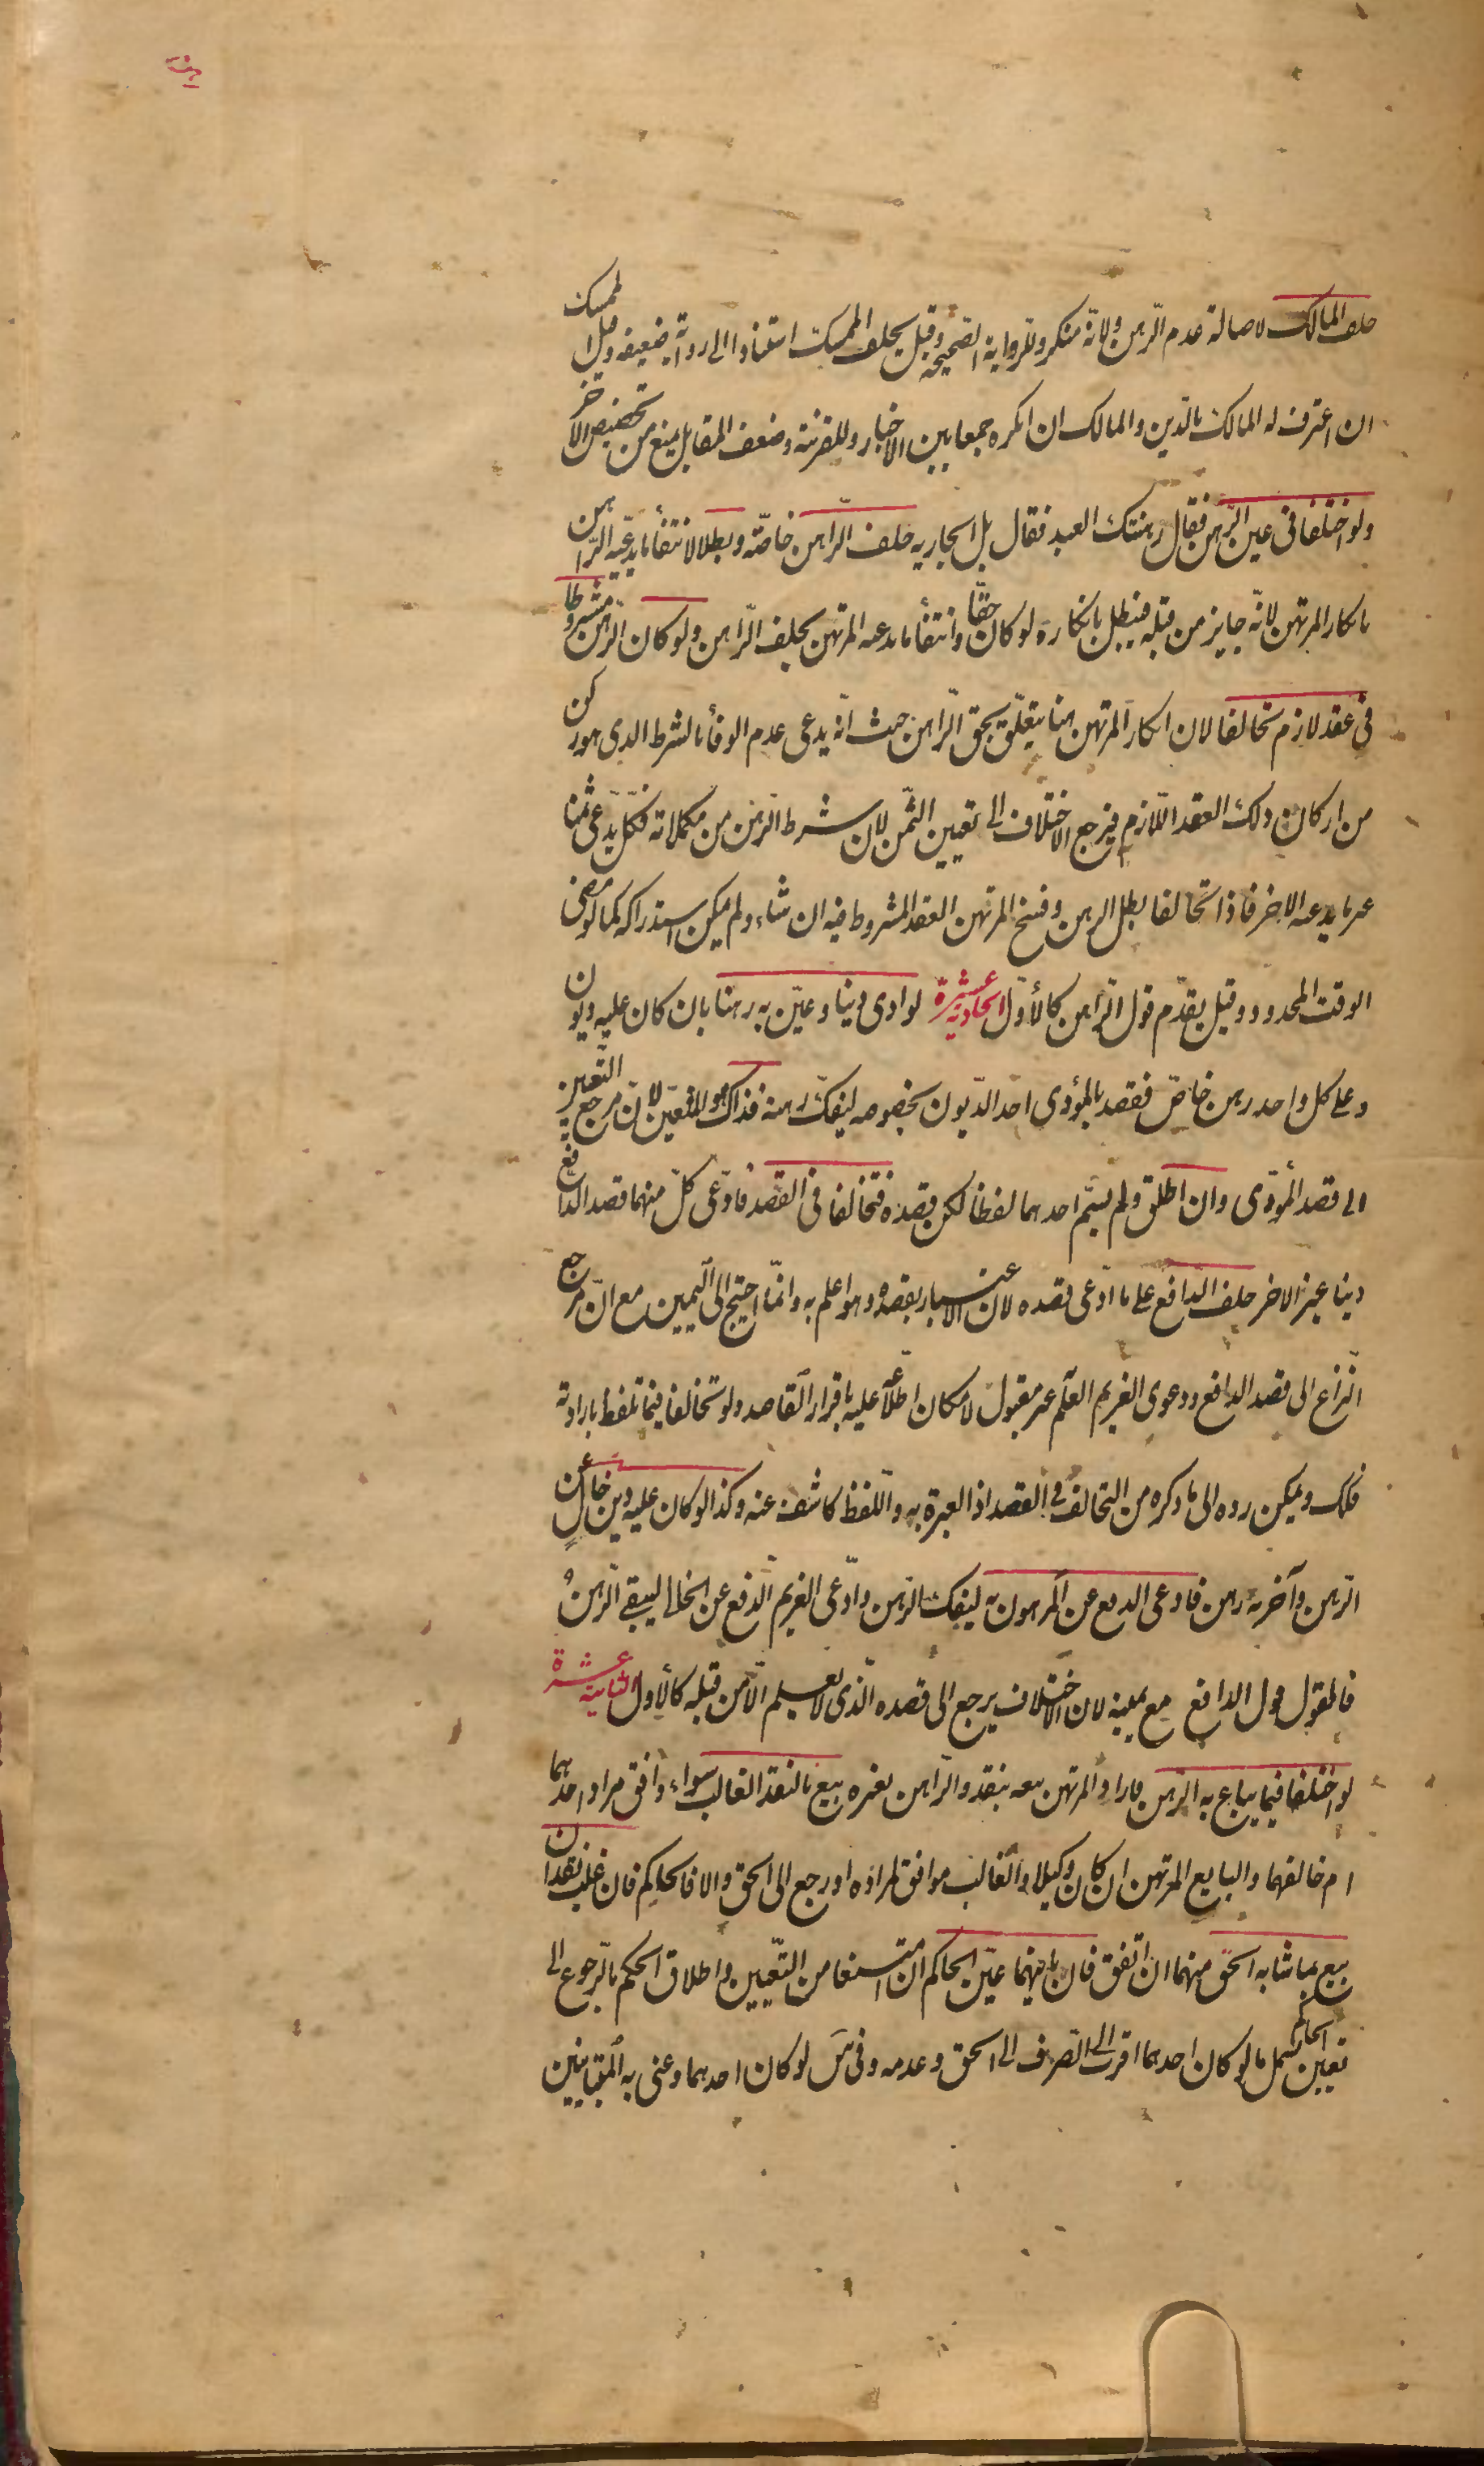 رهن
حلف المالك لاصالة عدم الرّهن ولانّه منكر وللرواية الصّحيحة وقيل يحلف الممسك استنادا الى رواية ضعيفة وقيل الممسك
ان اعترف له المالك بالدّين والمالك ان انكره جمعا بين الاخبار وللقرينة وضعف المقابل يمنع من تخصيص الاخر
ولو اختلفا فى عين الرّهن فقال رهنتك العبد فقال بل الجارية حلف الرّاهن خاصّة وبطلا لانتفأ ما يدعيه الرّاهن
بانكار المرتهن لانّه جايز من قبله فيبطل بانكاره لو كان حقّا وانتفأ ما يدعيه المرتهن بحلف الرّاهن ولو كان الرّهن مشروطا
فى عقد لازم تحالفا لان انكار المرتهن هنا يتعلّق بحق الرّاهن حيث انّه يدعى عدم الوفأ بالشرط الذى هو ركن
من اركان ذلك العقد اللّازم فيرجع الاختلاف الى تعيين الثّمن لان شرط الرّهن من مكملاته فكلّ يدّعى ثمنا
غير ما يدعيه الاخر فاذا تحالفا بطل الرهن وفسخ المرتهن العقد المشروط فيه ان شاء ولم يمكن استدراكه كما لو مضى
الوقت المحدود وقيل يقدّم قول الرّاهن كالأوّل الحادية عشرة لو ادى دينا وعيّن به رهنا بان كان عليه ديون
وعلى كل واحد رهن خاصّ فقصد بالمؤدى احد الدّيون بخصوصه ليفكّ رهنه فذاك هو المتعيّن لانّ مرجع التّعيين
الى قصد المؤدّى وان اطلق ولم يسّم احدهما لفظا لكن قصده فتخالفا فى القصد فادّعى كلّ منهما قصد الدّافع
دينا غير الاخر حلف الدّافع على ما ادّعى قصده لان الاعتبار بقصده وهو اعلم به وانّما احتيج الى اليمين مع انّ مرجع
النّزاع الى قصد الدافع ودعوى الغريم العلم غير مقبول لامكان اطلأعه عليه باقرار القاصد ولو تخالفا فيما تلفظ بارادته
فكك ويمكن رده الى ما ذكره من التخالف فى القصد اذ العبرة به واللفظ كاشف عنه وكذا لو كان عليه دين خال عن
الرّهن وآخر به رهن فادعى الدفع عن المرهون به ليفك الرّهن وادّعى الغريم الّدفع عن الخالى ليبقى الرّهن
فالقول قول الدافع مع يمينه لان الاختلاف يرجع الى قصده الّذى لا يعلم الّا من قبله كالأول الثانية عشرة
لو اختلفا فيما يباع به الرّهن فاراد المرتهن بيعه بنقد والرّاهن بغيره بيع بالنقد الغالب سواء وافق مراد احدهما
ام خالفهما والبايع المرتهن ان كان وكيلا والغالب موافق لمراده او رجع الى الحق والا فالحاكم فان غلب نقدان
بيع بما شابه الحقّ منهما ان اتفق فان بايتهما عيّن الحاكم ان امتنعا من التّعيين واطلاق الحكم بالرّجوع الى
تعيين الحاكم يشمل ما لو كان احدهما اقرب الى الصّرف الى الحق وعدمه وفى س لو كان احدهما وعنى به المتباينين